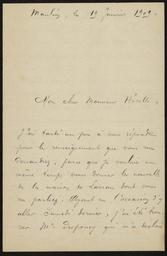 Moulins, le 19 janvier 1902.
Mon cher Monsieur
J'ai tardé un peu à vous répondre
pour le renseignement que vous me
demandez, parce que je voulais en
même temps vous donner la nouvelle
de la maison de dont vous
me parliez. Ayant eu l'occasion d'y
aller Samedi dernier, j'ai été
Mr. qui m'a